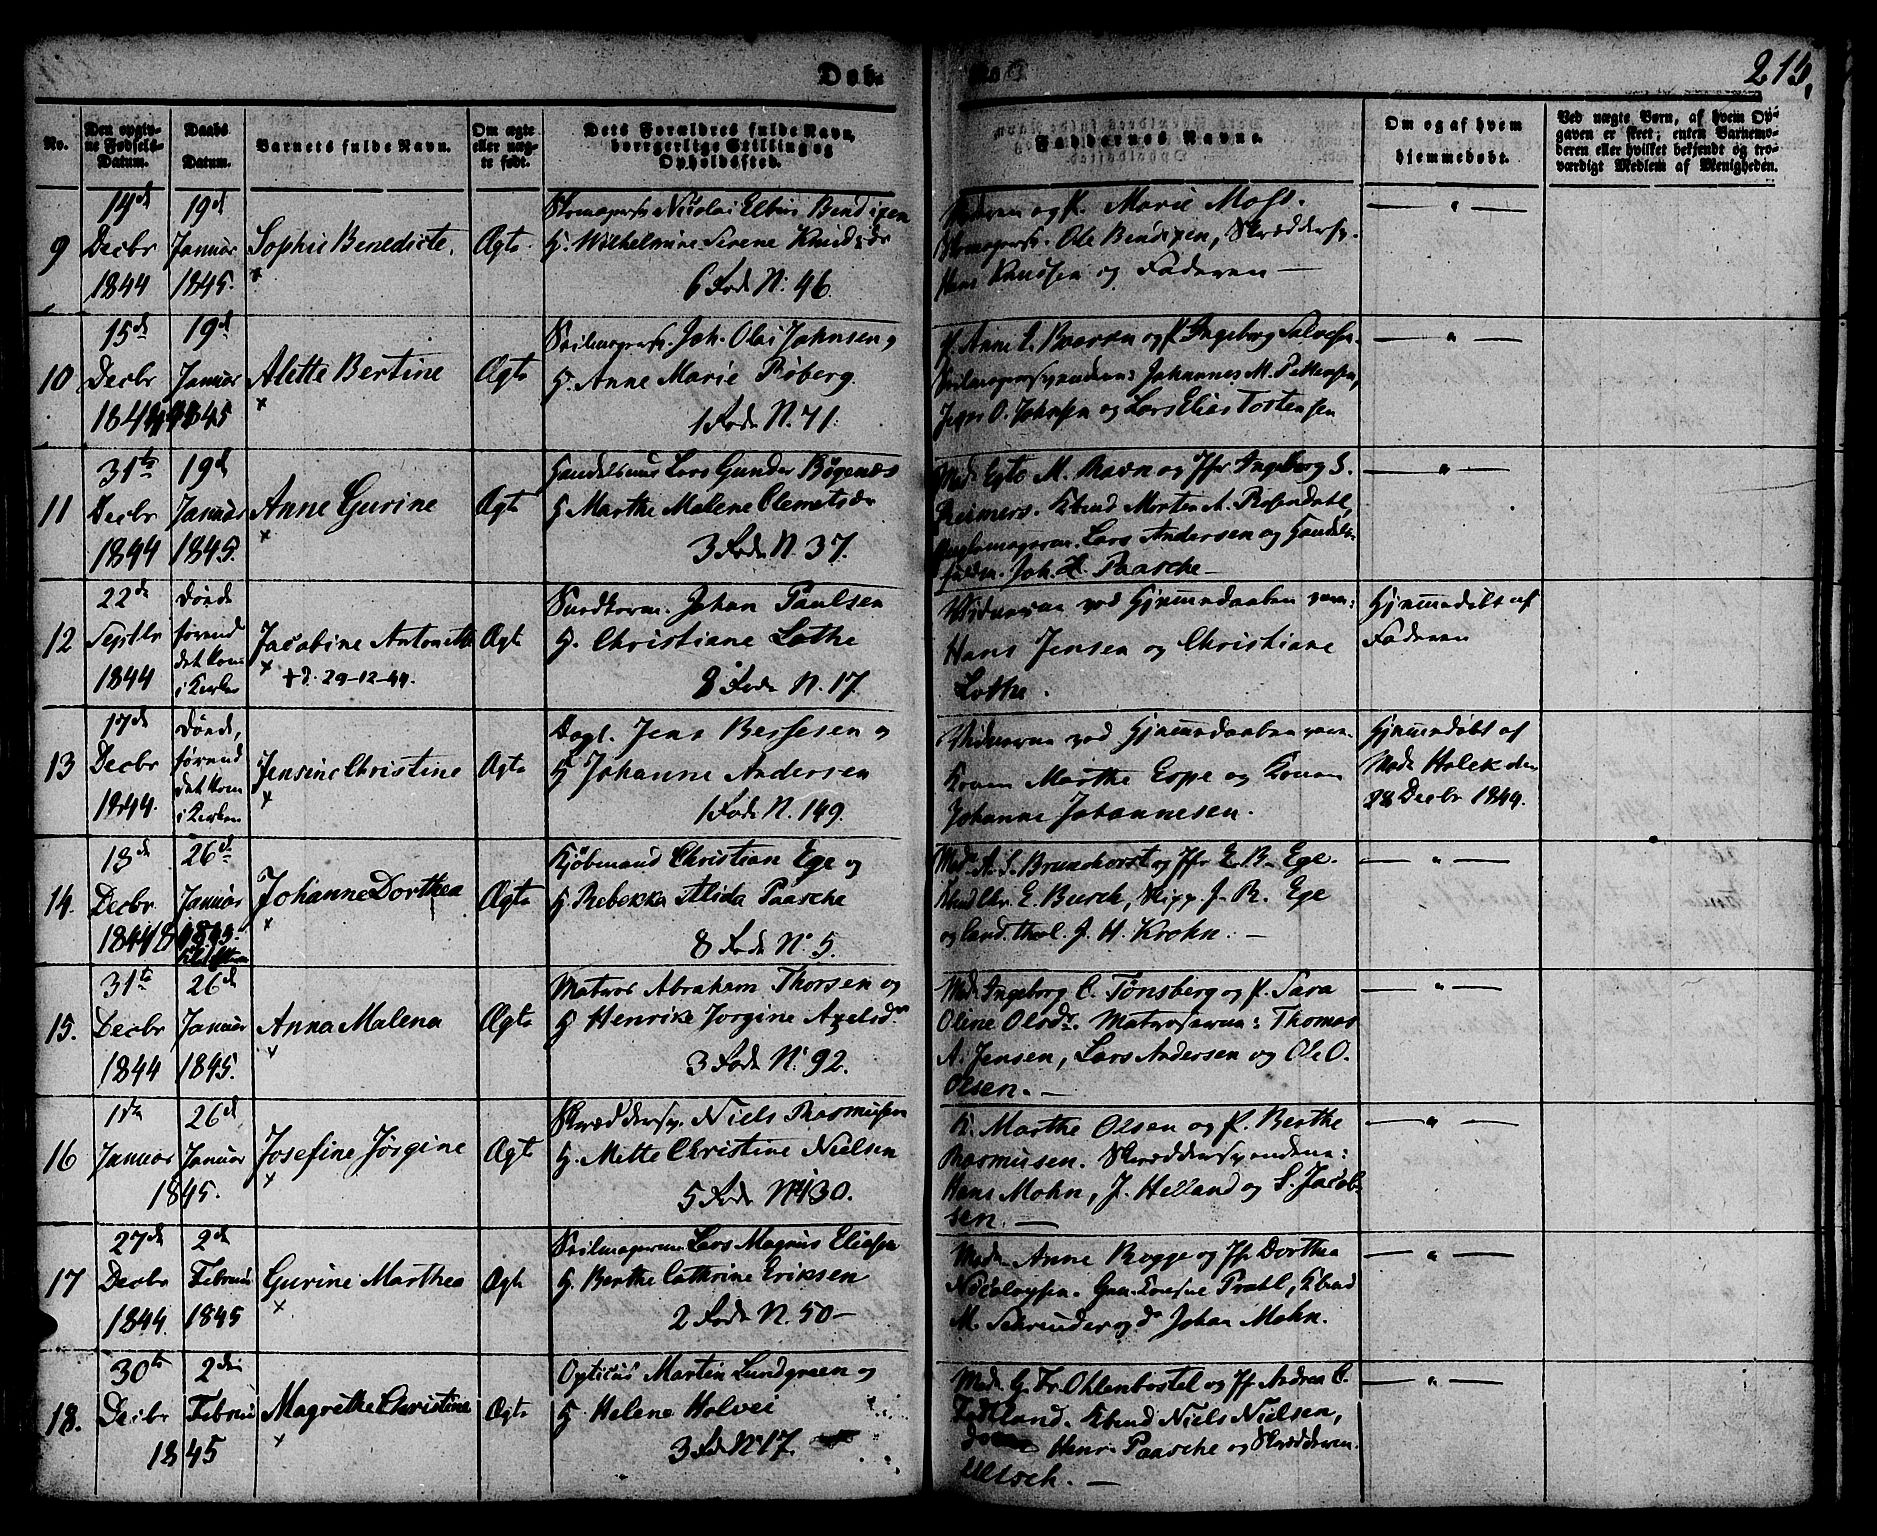 Døb.
215.
No.
Den opgivne Fødsels-Datum.
Daabs Datum.
Barnets fulde Navn.
Om ægte eller uægte født.
Dets Forældres fulde Navn, borgerlige Stilling og Opholdssted.
Faddernes Navne.
Om og af hvem hjemmedøbt.
Ved uægte Børn, af hvem Opgaven er skeet; enten Barnemoderen eller hvilket bekjendt og troværdigt Medlem af Menigheden.
9
14de Decbr 1844
19de Januar 1845.
Sophie Benedicte.
Ægte
Nicolai Bendixen
H. Wilhelmine Serene Knudsdr
6 Fode N. 46.
og P. Marie
Ole Bendixen,
Hans Knudsen og Faderen —
— " —
10
15de Decbr 1844
19de Januar 1845
Alette Bertine
Ægte
Seilmagersv. Joh. Olai Johnsen og
H. Anne Marie Røberg.
1 Fode N. 71.
P. Ingeborg
Seilmagersvendene: Johannes M. Pettersen,
Jens O. Johnsen og Lars Elias Tostensen
— " —
11
31te Decbr 1844
19de Januar 1845.
Anne Gurine
Ægte
Lars Gunder Bøgenæs
H. Marthe Malene Clemetsdr
3 Fode N. 37.
M. Ravn og Jfr Ingeborg S.
Reimers. Kbmd Morten A. Rosendahl,
Lars Andersen og Handels-
Joh. H. Paasche —
— " —
12
22de Septbr 1844
Døde førend det kom i Kirken
Jacobine Antonette
+ d. 29-12-44.
Ægte
Johan Paulsen
H. Christiane Lothe
8 Fode N. 17.
Vidnerne ved Hjemmedaaben vare:
Hans Jensen og Christiane
Lothe.
Hjemmedøbt af
Faderen
13
17de Decbr 1844.
Døde, førend det kom i Kirken
Jensine Christine
Ægte
Dagl. Jens Bessesen og
H. Johanne Andersen
1 Fode N. 149.
Vidnerne ved Hjemmedaaben vare
Konen Marthe Espe og Konen
Johanne Johannesen.
Hjemmedøbt af
Mad. Holck den
28 Decbr 1844.
14.
18de Decbr 1844
26de Januar
Johanne Dorthea
Ægte
Kjøbmand Christian Ege og
H. Rebekka Alida Paasche
8 Fode N. 5.
Mad. A. S. Brunchorst og Jfr E. B. Ege.
E. Busch, Skipp. J. R. Ege
og Cand. theol. J. H. Krohn. —
— " —
15.
31te Decbr 1844
26de Januar 1845.
Anna Malena
Ægte
Matros Abraham Thorsen og
H. Henrike Jørgine Axelsdr
3 Fode N. 92.
Mad. Ingeborg C. Tønsberg og P. Sara
Oline Olsdr. Matroserne: Thomas
A. Jensen, Lars Andersen og Ole O.
Olsen. —
— " —
16
1ste Januar 1845.
26de Januar
Josefine Jørgine
Ægte
Skræddersv. Niels Rasmusen
H. Mette Christine Nielsen
5 Fode N. 130.
K. Marthe Olsen og P. Berthe
Rasmusen. Skræddersvendene:
Hans Mohn, J. Helland og S. Jacob-
sen. —
— " —
17
27de Decbr 1844.
2de Februar 1845
Gurine Marthea
Ægte
Seilmagerm. Lars Magnus Eliasen
H. Berthe Cathrine Eriksen
2 Fode N. 50 —
Mad. Anne Rogge og Jfr Dorthea
Nicolaysen. Prahl, Kbmd
M. Schrøder og do Johan Mohn.
— " —
18.
30te Decbr
2den Februar
1845
Magrethe Christine
Ægte
Opticus Martin Lundgreen og
H. Helene Holvei
3 Fode N. 17.
Mad. G. Fr. Ohlenbostel og Jfr Andrea C.
Kbmd Niels Nielsen,
Henr. Paasche og Skrædderm.
Ultsch. —
— " —